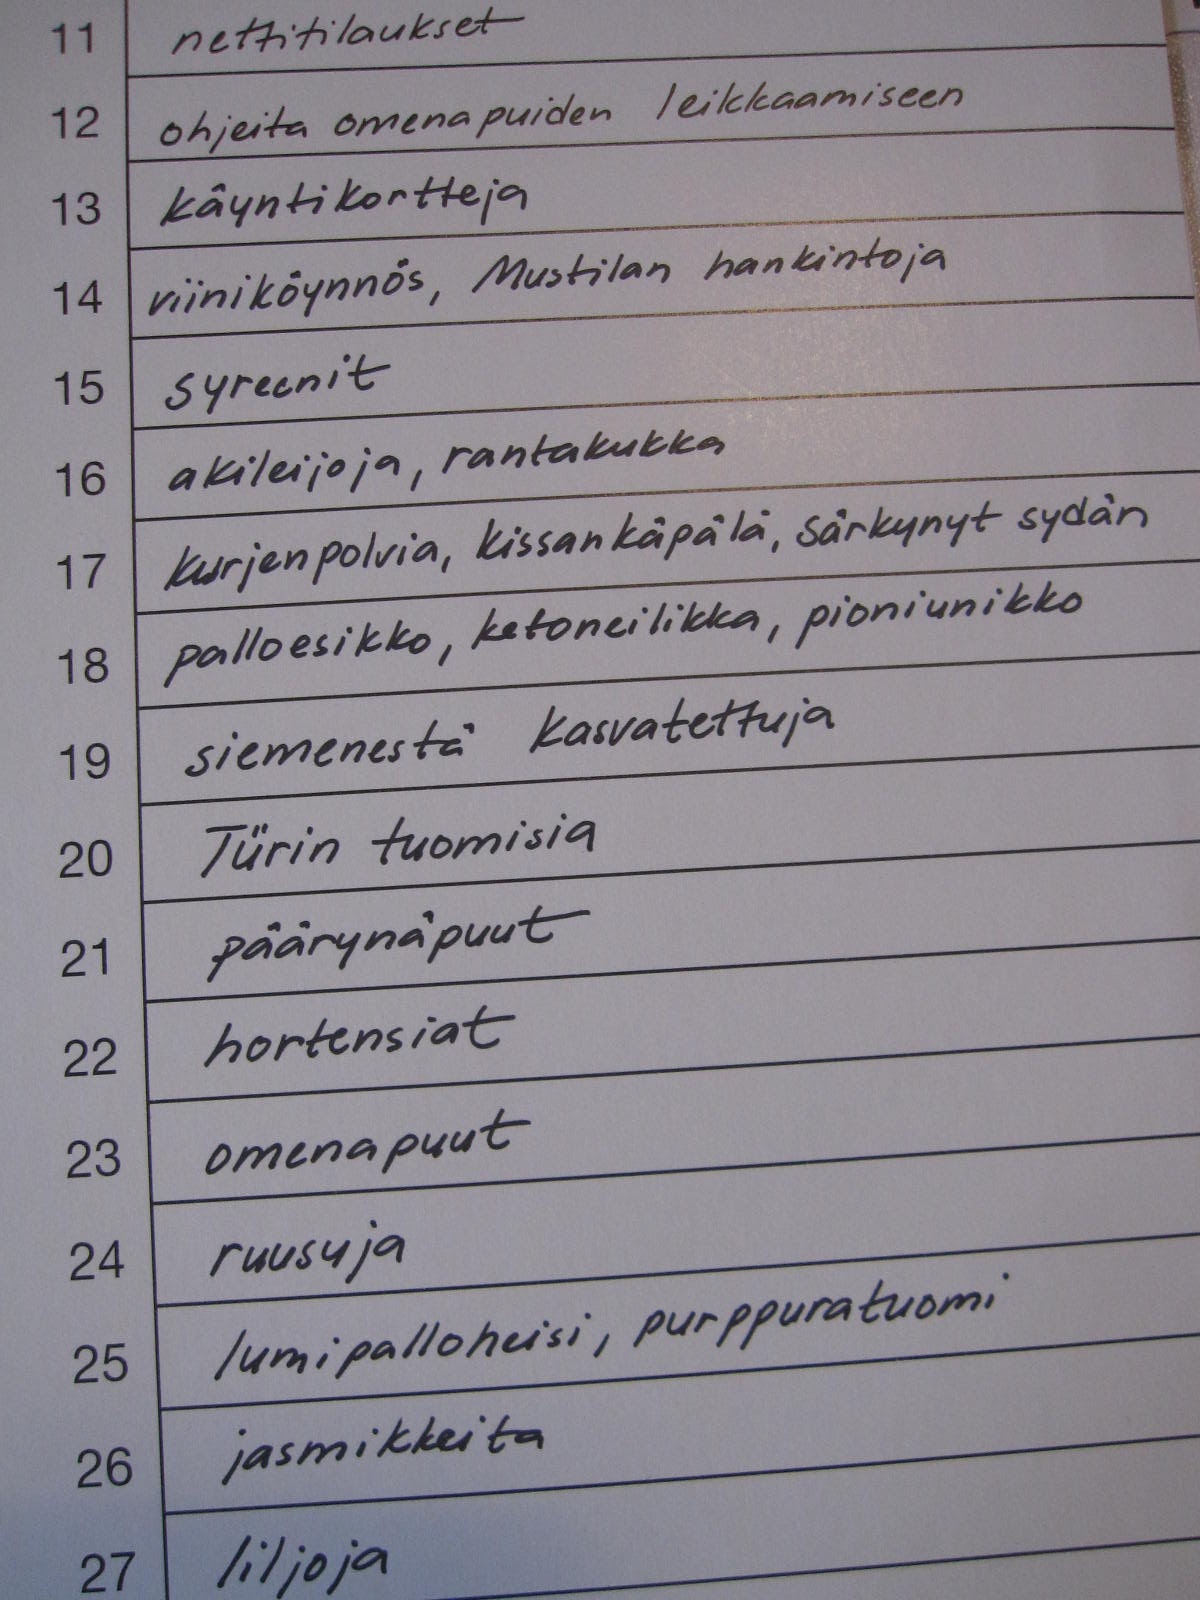 11 nettitilaukset
12 ohjeita omenapuiden leikkaamiseen
13 käyntikortteja
14 viiniköynnös, Mustilan hankintoja
15 syreenit
16 akileijoja, rantakukka
17 kurjenpolvia, kissankäpälä, särkynyt sydän
18 palloesikko, ketoneilikka, pioniunikko
19 siemenestä kasvatettuja
20 Türin tuomisia
21 päärynäpuut
22 hortensiat
23 omenapuut
24 ruusuja
25 lumipalloheisi, purppuratuomi
26 jasmikkeita
27 liljoja